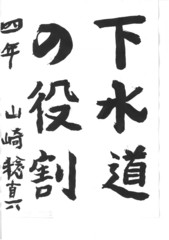 下水道
の役割
四年 山崎